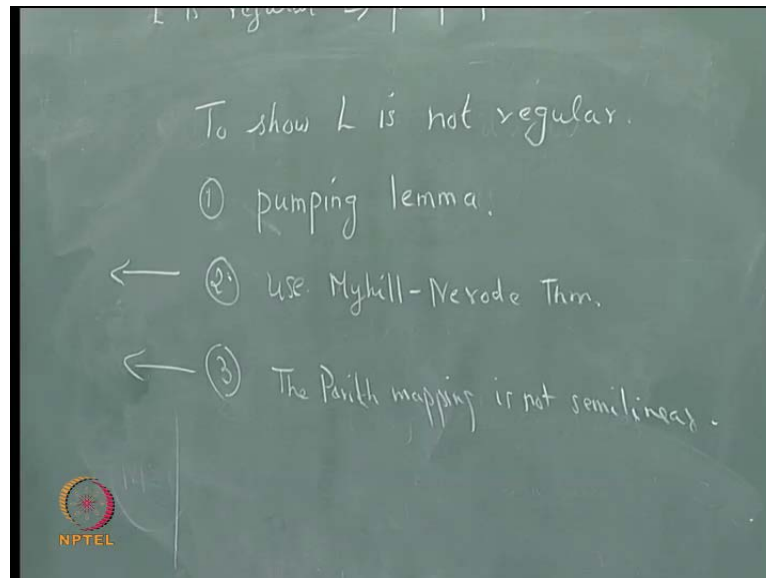 L is regular ⇒
To show L is not regular.
① pumping lemma.
← ② use Myhill-Nerode Thm.
← ③ The Parikh mapping is not semilinear.
NPTEL